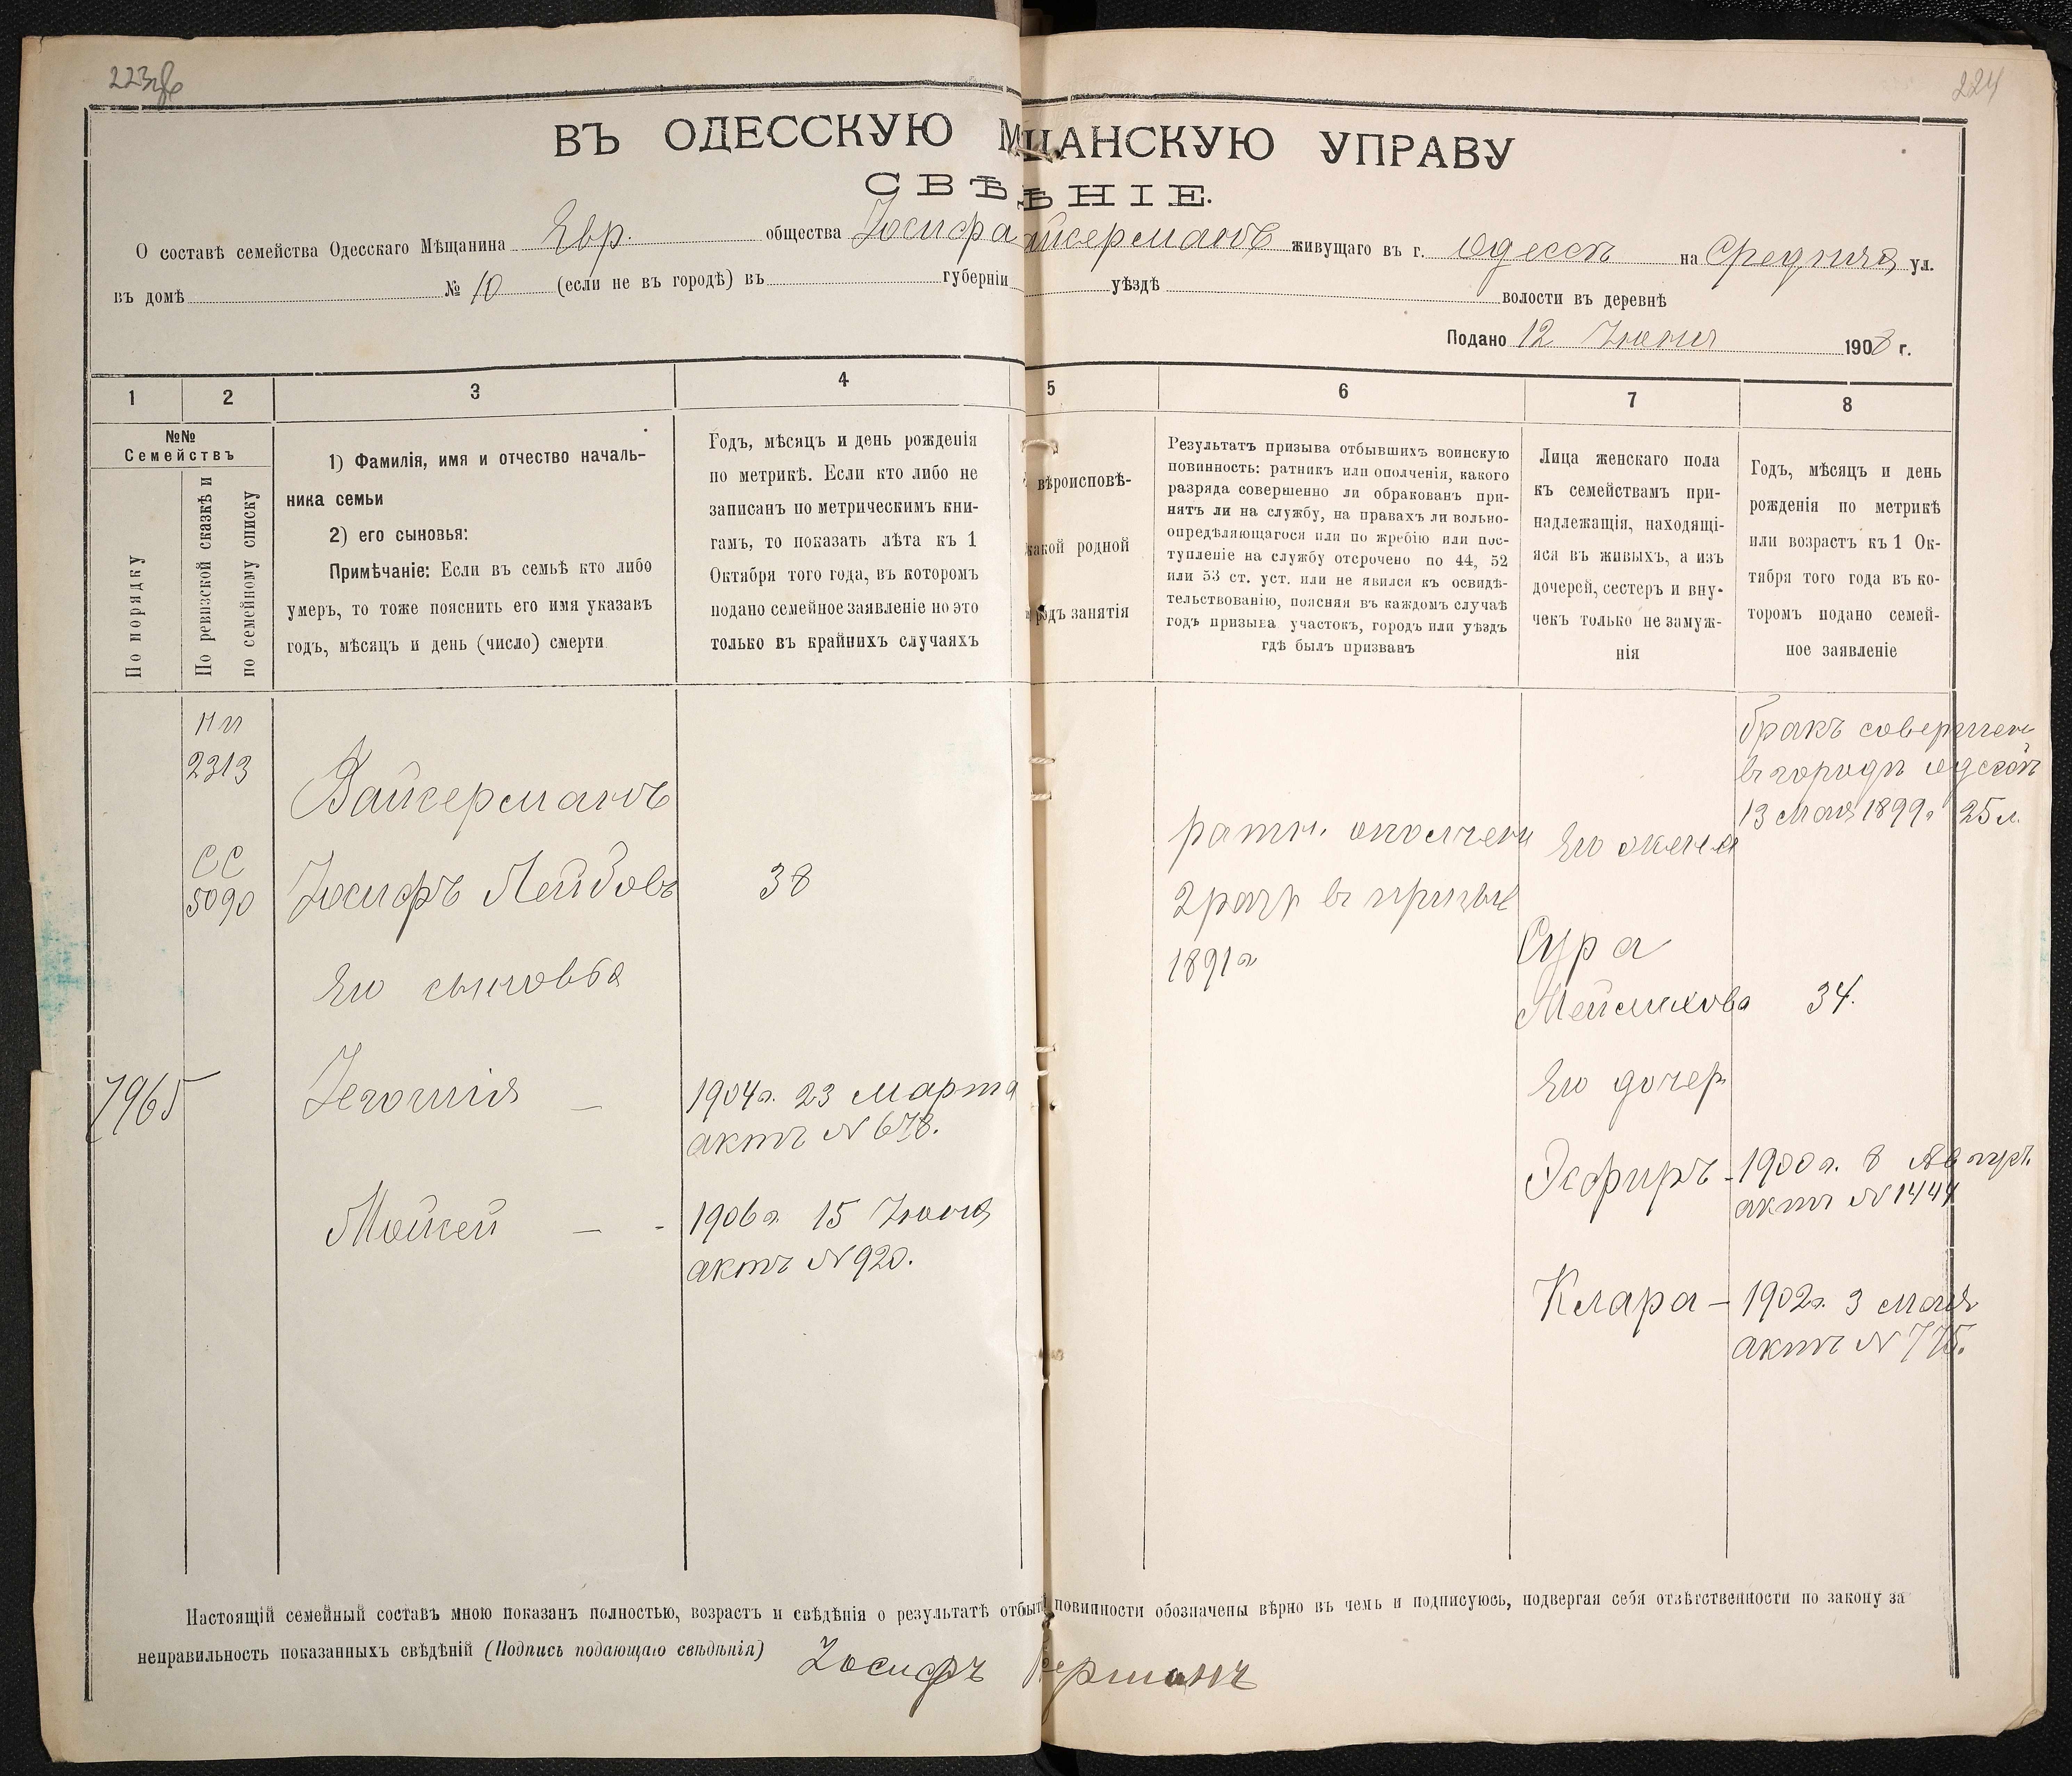 223об
224
ВЪ ОДЕССКУЮ М ЩАНСКУЮ УПРАВУ
СВѢ ѢНІЕ.
О составѣ семейства Одесскаго Мѣщанина Евр. общества Іосифа айсерманъ живущаго въ г. Одессѣ на Средняя ул.
въ домѣ № 10 (если не въ городѣ) въ губерніи уѣздѣ волости въ деревнѣ
Подано 12 Іюня 1908 г.
1 2 3 4 5 6 7 8
№№
Семействъ
По порядку
По ревизской сказкѣ и
по семейному списку
1) Фамилія, имя и отчество началь-
ника семьи
2) его сыновья:
Примѣчаніе: Если въ семьѣ кто либо
умеръ, то тоже пояснить его имя указавъ
годъ, мѣсяцъ и день (число) смерти
Годъ, мѣсяцъ и день рожденія
по метрикѣ. Если кто либо не
записанъ по метрическимъ кни-
гамъ, то показать лѣта къ 1
Октября того года, въ которомъ
подано семейное заявленіе но это
только въ крайнихъ случаяхъ
вѣроисповѣ-
какой родной
родъ занятія
Результатъ призыва отбывшихъ воинскую
повинность: ратникъ или ополченія, какого
разряда совершенно ли обракованъ при-
нятъ ли на службу, на правахъ ли вольно-
опредѣляющагося или по жребію или пос-
тупленіе на службу отсрочено по 44, 52
или 53 ст. уст. или не явился къ освидѣ-
тельствованію, поясняя въ каждомъ случаѣ
годъ призыва участокъ, городъ или уѣздъ
гдѣ былъ призванъ
Лица женскаго пола
къ семействамъ при-
надлежащія, находящі-
яся въ живыхъ, а изъ
дочерей, сестеръ и вну-
чекъ только не замуж-
нія
Годъ, мѣсяцъ и день
рожденія по метрикѣ
или возрастъ къ 1 Ок-
тября того года въ ко-
торомъ подано семей-
ное заявленіе
2313
Вайсерманъ
СС
5090
Іосифъ Лейбовъ
38
Его сыновья
7965
Іегошія —
1904г. 23 Марта
актъ № 678.
Мойсей — -
1906г 15 Іюня
актъ № 920.
ратн. ополчен
2 разр въ призыв
1891г
бракъ совершен
въ городѣ
13 Мая 1899г 25 л.
Его жена
Сура
34.
Его дочер
Эсфиръ -
1900г. 8 Август.
актъ № 1444
Клара -
1902г. 3 Мая
актъ № 775.
Настоящій семейный составъ мною показанъ полностью, возрастъ и свѣдѣнія о результатѣ отбыті повинности обозначены вѣрно въ чемъ и подписуюсь, подвергая себя отвѣтственности по закону за
неправильность показанныхъ свѣдѣній (Подпись подающаго свѣдѣнія) Іосифъ серманъ